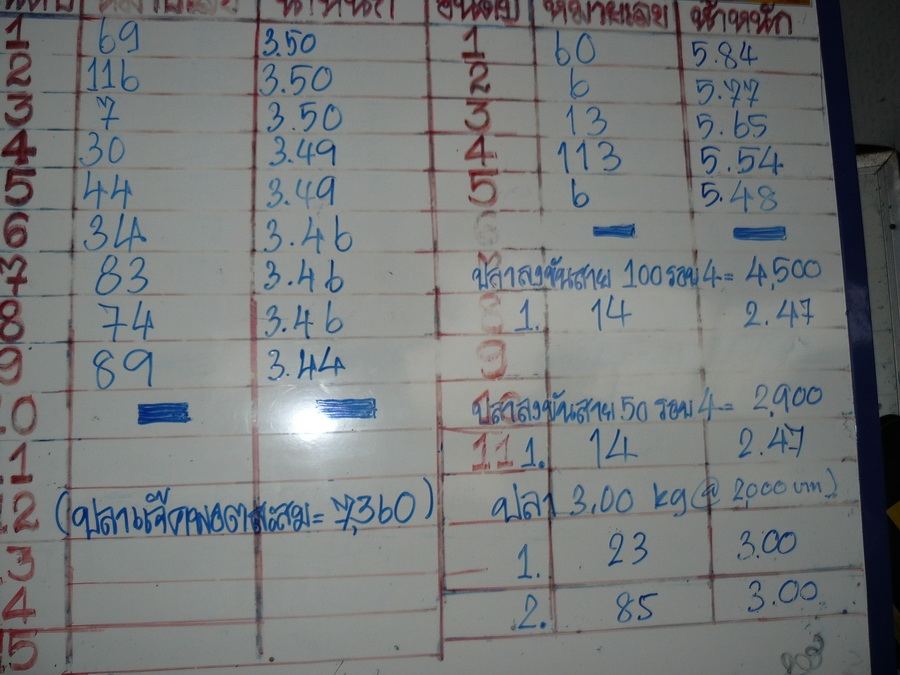 อันดับ หมายเลข น้ำหนัก
1 69 3.50
2 116 3.50
3 7 3.50
4 30 3.49
5 44 3.49
6 34 3.46
7 83 3.46
8 74 3.46
9 89 3.44
10
11
12 (ปลาแจ๊คพอตสะสม= 7,360)
3
4
5
อันดับ หมายเลข น้ำหนัก
1 60 5.84
2 6 5.77
3 13 5.65
4 113 5.54
5 6 5.48
6
ปลาลงขันสาย 100 รอบ 4 = 4,500
1. 14 2.47
9
ปลาลงขันสาย 50 รอบ 4 = 2,900
11 1. 14 2.47
ปลา 3.00 kg (@ 2,000 บาท)
1. 23 3.00
2. 85 3.00